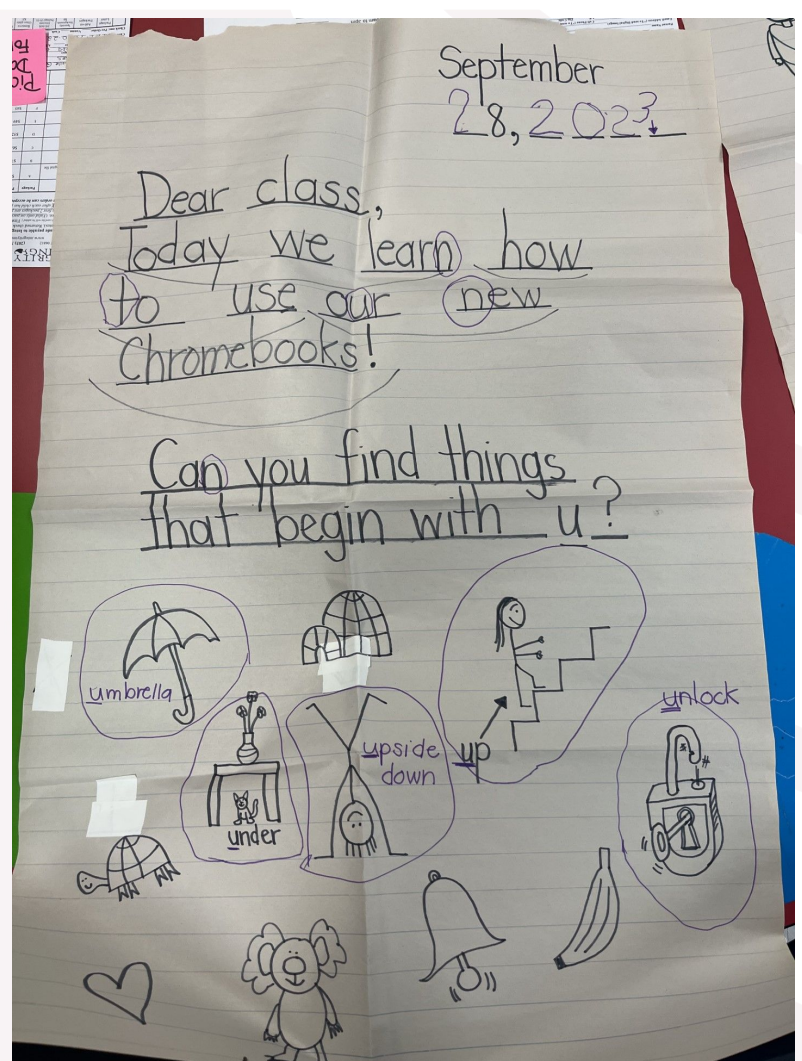 September
28, 2023
Dear class,
Today we learn how
to use our new
Chromebooks!
Can you find things
that begin with u?
umbrella
unlock
upside
down
up
under